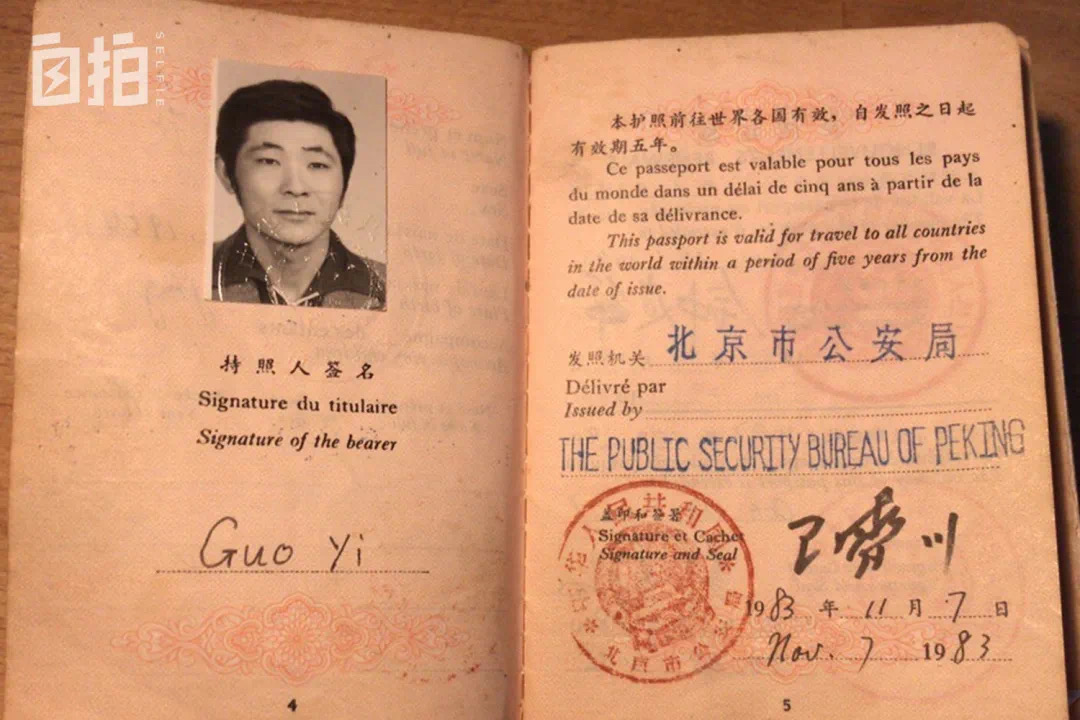 自拍
SELFIE
持照人签名
Signature du titulaire
Signature of the bearer
Guo Yi
4
本护照前往世界各国有效，自发照之日起
有效期五年。
Ce passeport est valable pour tous les pays
du monde dans un délai de cinq ans à partir de la
date de sa délivrance.
This passport is valid for travel to all countries
in the world within a period of five years from the
date of issue.
发照机关 北京市公安局
Délivré par
Issued by
THE PUBLIC SECURITY BUREAU OF PEKING
盖印和签署
Signature et Cachet
Signature and Seal
北京市公
1983年11月7日
Nov. 7 1983
5